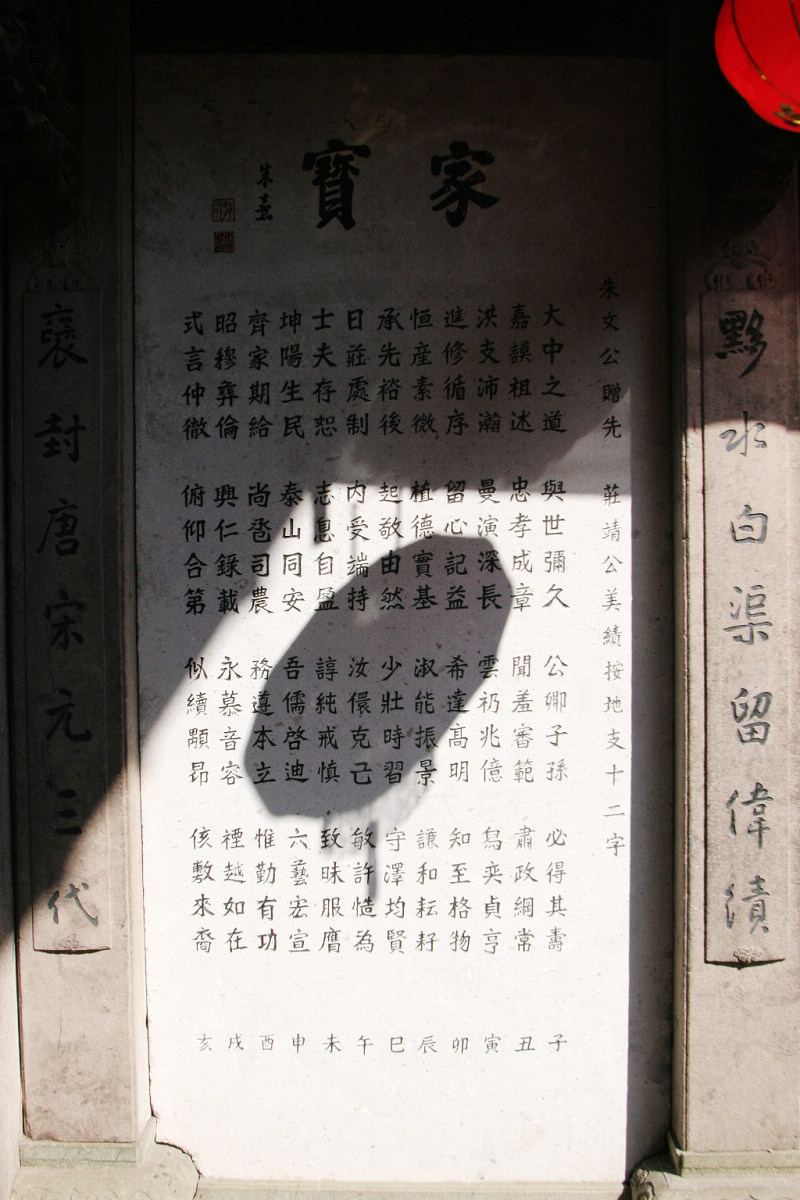 家寶
朱熹
黟水白渠留偉績
朱文公贈先 莊靖公美績按地支十二字
大中之道 與世彌久 公卿子孫 必得其壽 子
嘉謨祖述 忠孝成章 聞羞審範 肅政綱常 丑
洪支沛瀚 曼演深長 雲礽兆億 舄奕貞亨 寅
進修循序 留心記益 希達髙明 知至格物 卯
恒産素微 植德實基 淑能振景 謙和耘耔 辰
承先裕後 起敬由然 少壯時習 守澤均賢 巳
日莊處制 内受端持 汝儇克己 敏許慥為 午
士夫存恕 志息自盈 諄純戒慎 致昧服膺 未
坤陽生民 泰山同安 吾儒啓迪 六藝宏宣 申
齊家期給 尚嗇司農 務遵本立 惟勤有功 酉
昭穆彝倫 興仁錄載 永慕音容 禋越如在 戌
式言仲徹 俯仰合第 似續顒昂 侅敷來裔 亥
褒封唐宋元三代